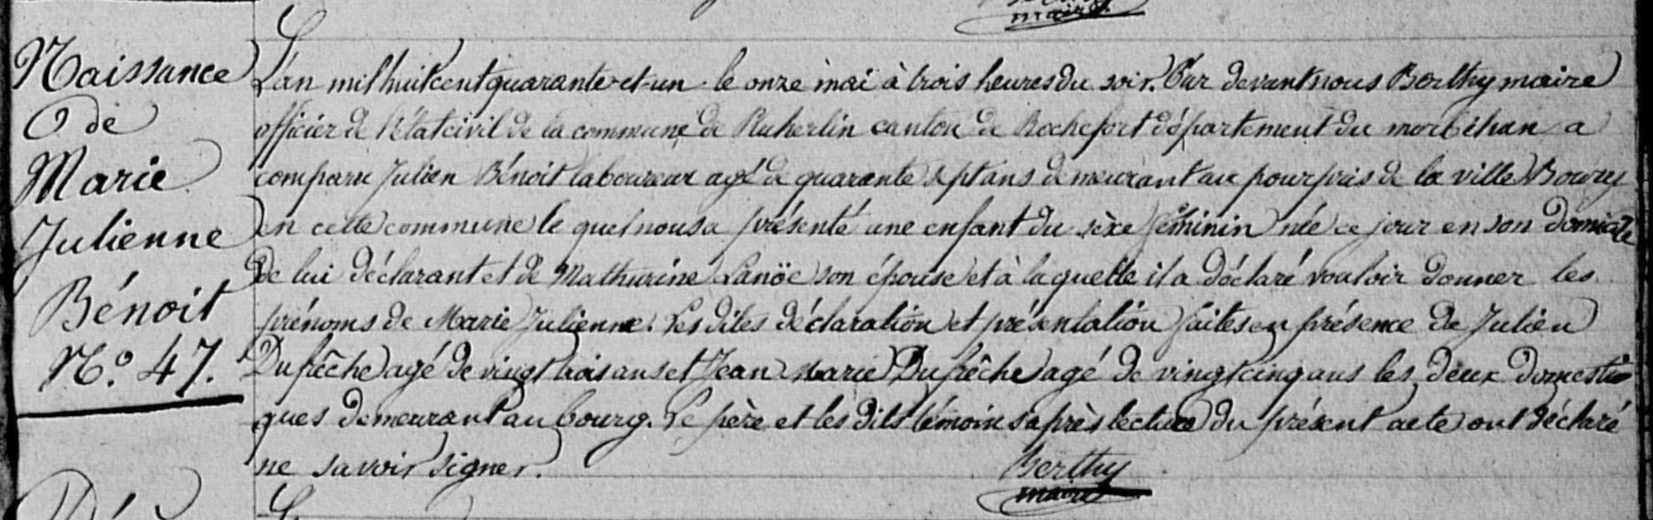 maire
Naissance
de
Marie
Julienne
Bénoit
N.º 47.
L'an mil huit cent quarante-et-un le onze mai à trois heures du soir. Par devant nous Berthy maire
officier de l'état civil de la commune de Pluherlin canton de Rochefort département du morbihan a
comparu Julien Bénoit laboureur agé de quarante sept ans demeurant au pourpris de la ville Bourg
en cette commune le quel nous a présenté une enfant du sèxe féminin née ce jour en son domicile
De lui déclarant et de Mathurine Lanöe son épouse et à laquelle il a déclaré vouloir donner les
prénoms de Marie Julienne. Les dites déclaration et présentation faites en présence de Julien
Dufrêche agé de vingt trois ans et Jean Marie Dufrêche agé de vingt cinq ans les deux domesti-
ques demeurant au bourg. Le père et les dits témoins après lecture du présent acte ont déclaré
ne savoir signer.
Berthy
maire